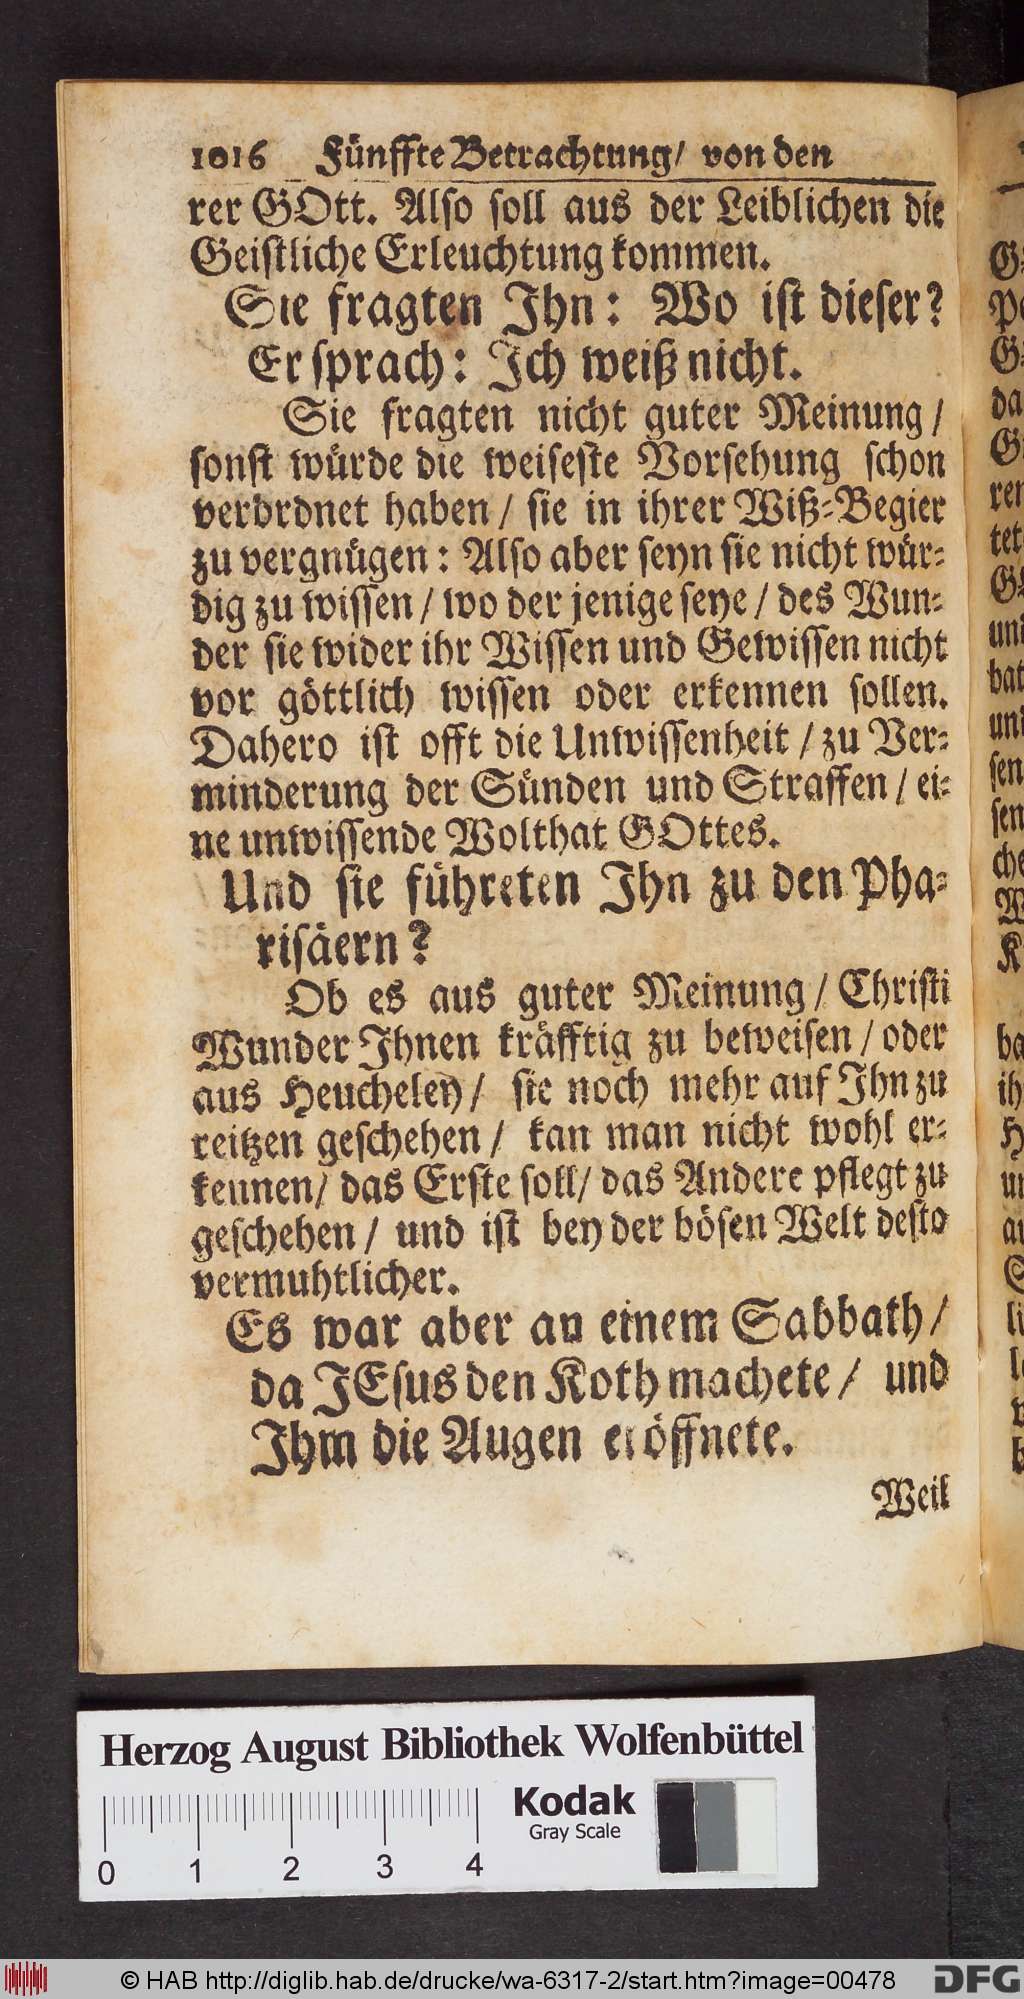 1016 Fünffte Betrachtung/ von den
rer GOtt. Also soll aus der Leiblichen die
Geistliche Erleuchtung kommen.
Sie fragten Ihn: Wo ist dieser?
Er sprach: Ich weiß nicht.
Sie fragten nicht guter Meinung /
sonst würde die weiseste Vorsehung schon
verordnet haben / sie in ihrer Wiß-Begier
zu vergnügen: Also aber seyn sie nicht wür-
dig zu wissen / wo der jenige seye / des Wun-
der sie wider ihr Wissen und Gewissen nicht
vor göttlich wissen oder erkennen sollen.
Dahero ist offt die Unwissenheit / zu Ver-
minderung der Sünden und Straffen / ei-
ne unwissende Wolthat GOttes.
Und sie führeten Ihn zu den Pha-
risäern?
Ob es aus guter Meinung / Christi
Wunder Ihnen kräfftig zu beweisen / oder
aus Heucheley / sie noch mehr auf Ihn zu
reitzen geschehen / kan man nicht wohl er-
kennen/ das Erste soll/ das Andere pflegt zu
geschehen / und ist bey der bösen Welt desto
vermuhtlicher.
Es war aber an einem Sabbath /
da JEsus den Koth machete / und
Ihm die Augen eröffnete.
Weil
Herzog August Bibliothek Wolfenbüttel
Kodak
Gray Scale
0 1 2 3 4
© HAB http://diglib.hab.de/drucke/wa-6317-2/start.htm?image=00478
DFG